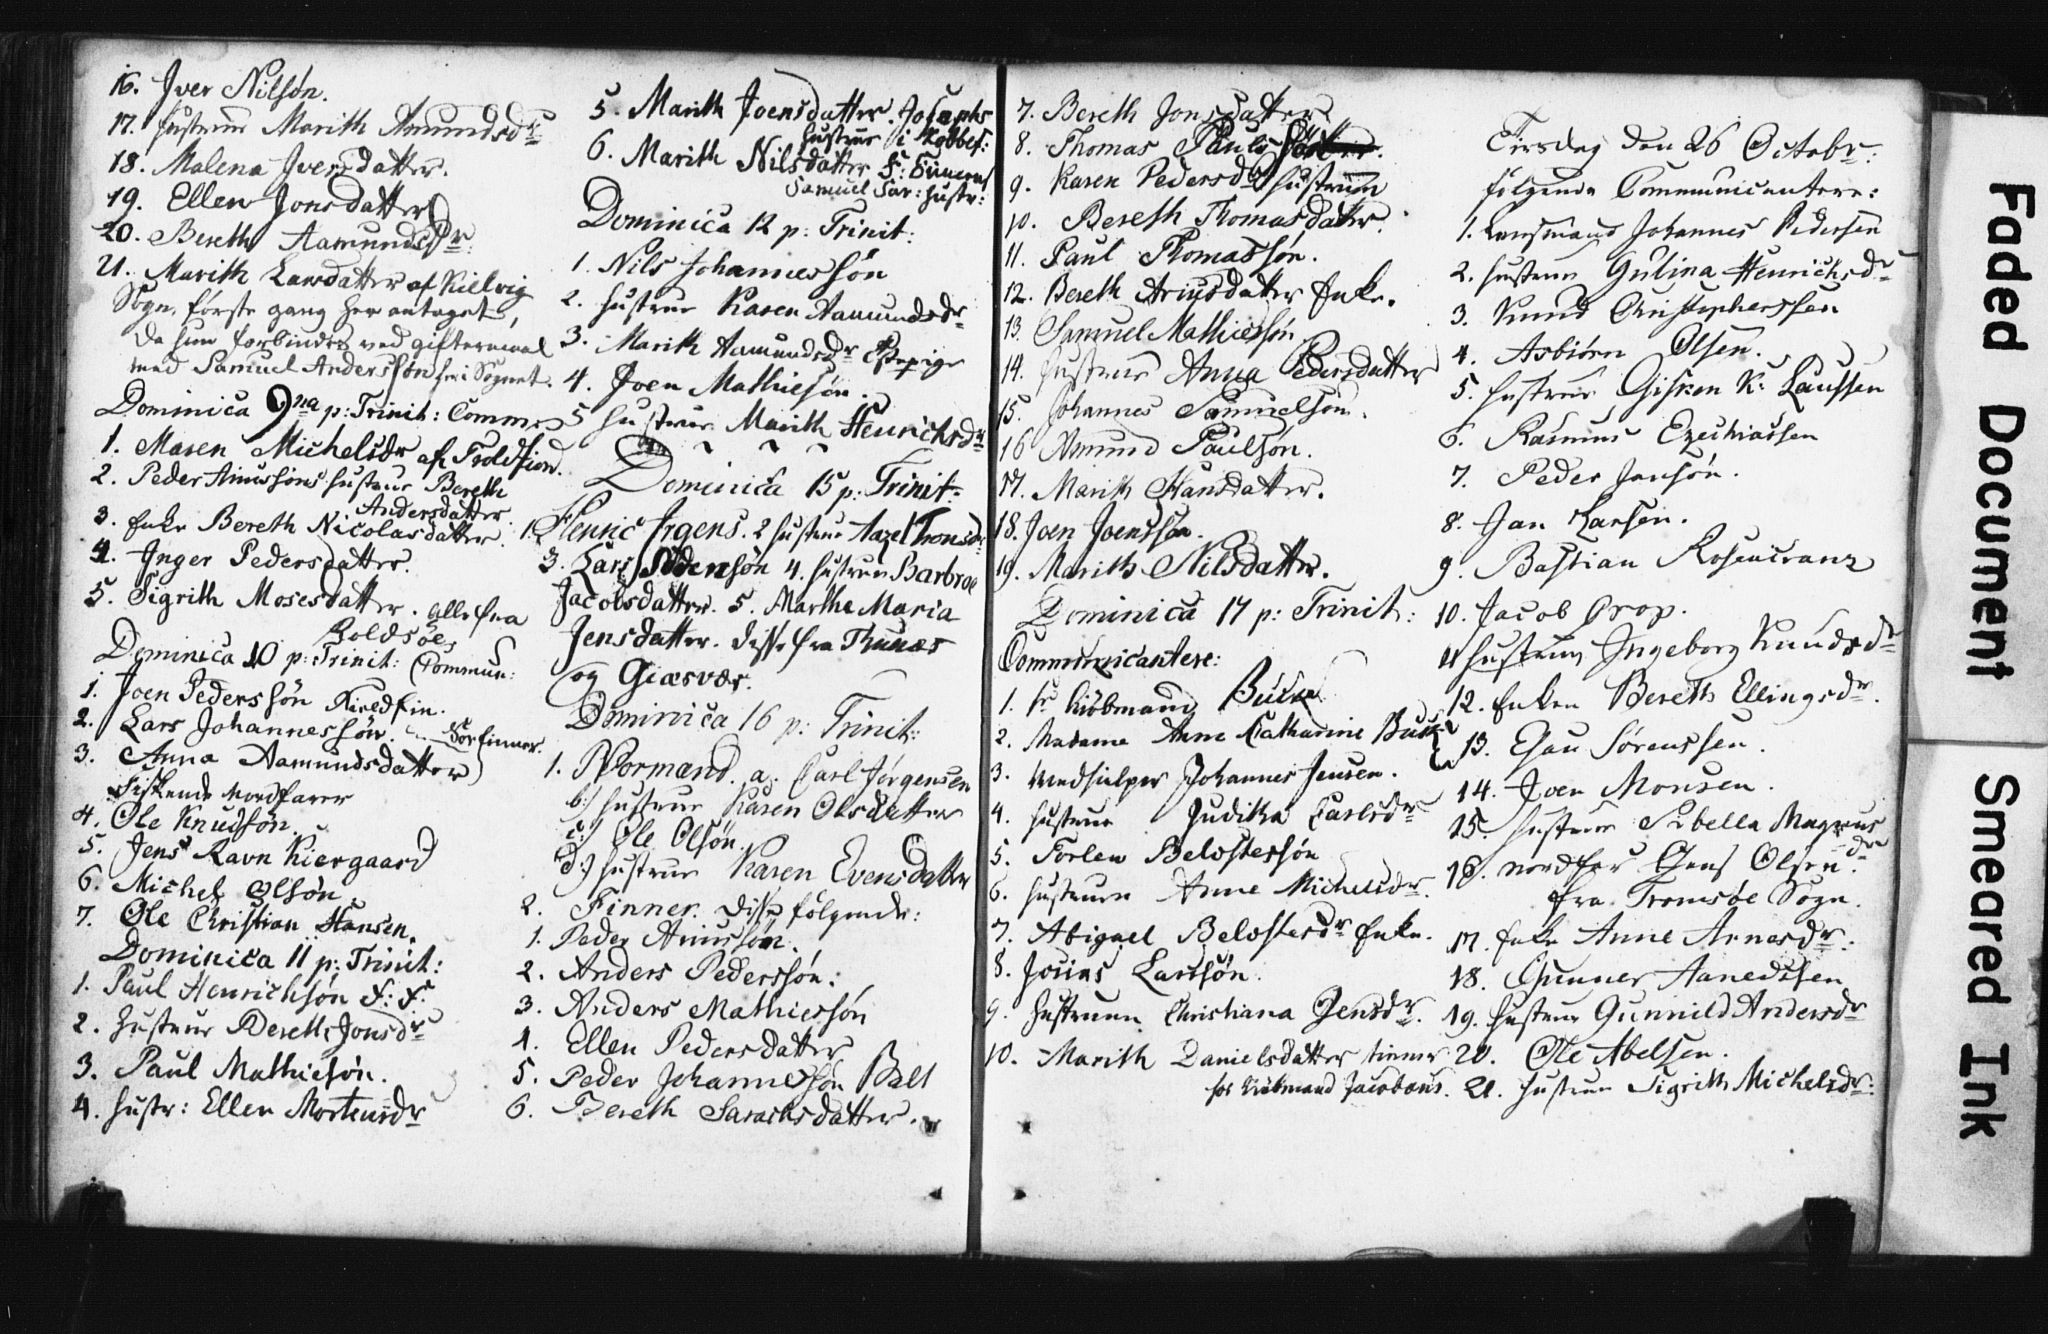 16. Iver Nilsøn.
17. Hustrue Marith Amundsdr
18. Malena Iversdatter.
19. Ellen Jonsdatter
20. Bereth Aamundsdr.
21. Marith Larsdatter af Kielvig
Sogn, første gang her antaget,
da hun forbindes ved giftermaal
med Samuel Anderssøn her i Sognet.
Dominica 9na p: Trinit: Comm
1. Maren Michelsdr af Troldfiord.
2. Peder Amussøns hustrue Bereth
Andersdatter.
3. Enke Bereth Nicolasdatter.
4. Inger Pedersdatter.
5. Sigrith Mosesdatter. alle fra
Roldsøe
Dominica 10 p: Trinit: Commun:
1. Joen Pederssøn
2. Lars Johannessøn. Søefinner.
3. Anna Aamundsdatter
Fiskende Nordfarer
4. Ole Knudsøn.
5. Jens Ravn Kiergaard
6. Michel Olsøn
7. Ole Christian Hansen.
Dominica 11 p: Trinit:
1. Paul Henrichsøn F: F:
2. Hustrue Bereth Jonsdr
3. Paul Mathiesøn.
4. Hustr: Ellen Mortensdr
5. Marith Joensdatter. Josephs
hustrue i Kobbef:
6. Marith Nilsdatter F:
Samuel Sar: hustr:
Dominica 12 p: Trinit:
1. Nils Johannessøn
2. hustrue Karen Aamundsdr
3. Marith Aamundsdr Pige
4. Joen Mathiesøn.
5 hustrue Marith Henrichsdr
Dominica 15 p: Trinit:
1. Henric Irgens. 2 hustrue Aazel Tronsdr
3. Lars Pedersøn 4. hustrue Barbroe
Jacobsdatter. 5. Marthe Maria
Jensdatter. disse fra Thunæs
og Giæsvær.
Dominica 16 p: Trinit:
1. Normænd. a. Carl Jørgensen
b:) hustrue Karen Olsdatter
c:) Ole Olsøn.
d:) hustrue Karen Evensdatter
2. Finner. disse følgende:
1. Peder Amussøn.
2. Anders Pederssøn:
3. Anders Mathiessøn
4. Ellen Pedersdatter
5. Peder Johannessøn Balt
6. Bereth Sarachsdatter.
7. Bereth Jonsdatter
8. Thomas Pauls
9. Karen Pedersdr hustrue
10. Bereth Thomasdatter.
11. Paul Thomassøn.
12. Bereth Ariusdatter Enke.
13 Samuel Mathiessøn
14. Hustrue Anna Pedersdatter
15. Johannes Samuelsøn.
16 Amund Paulsøn.
17. Marith Hansdatter.
18. Joen Joenssøn.
19. Marith Nilsdatter.
Dominica 17 p: Trinit:
Communicantere:
1. Hr Kiøbmand Buck
2. Madame Anne Catharine Buck
3. Medhielper Johannes Jensen.
4. hustrue Juditha Carlsdr
5. Torlen Belostersøn
6. hustruen Anne Michelsdr.
7. Abigael Belostersdr Enke.
8. Jonas Larssøn.
9. Hustruen Christiana Jensdr.
10. Marith Danielsdatter tiener
hos Kiøbmand Jacobæus.
Tirsdag den 26 Octobr:
følgende Communicantere:
1. Lensmand Johannes Pedersen
2. hustrue Gulina Henrichsdr
3. Knud Christophersen
4. Asbiørn Olsen.
5. hustrue Gisken K: Laussen
6. Rasmus Ezechiassen
7. Peder Jansøn.
8. Jan Larsen.
9. Bastian Rosencranz
10. Jacob Grop.
11 hustrue Ingeborg Knudsdr
12. Enken Bereth Ellingsdr.
13. Esau Sørenssen.
14. Joen Monsen.
15. hustrue Sibella Magnus
dr
16. Nordfar Jens Olsen.
fra Tromsøe Sogn.
17. Enke Anne Arnesdr.
18. Gunner Aanedsen
19. hustrue Gunnild Andersdr
20. Ole Abelsen.
21. hustrue Sigrith Michelsdr:
Faded Document
Smeared Ink